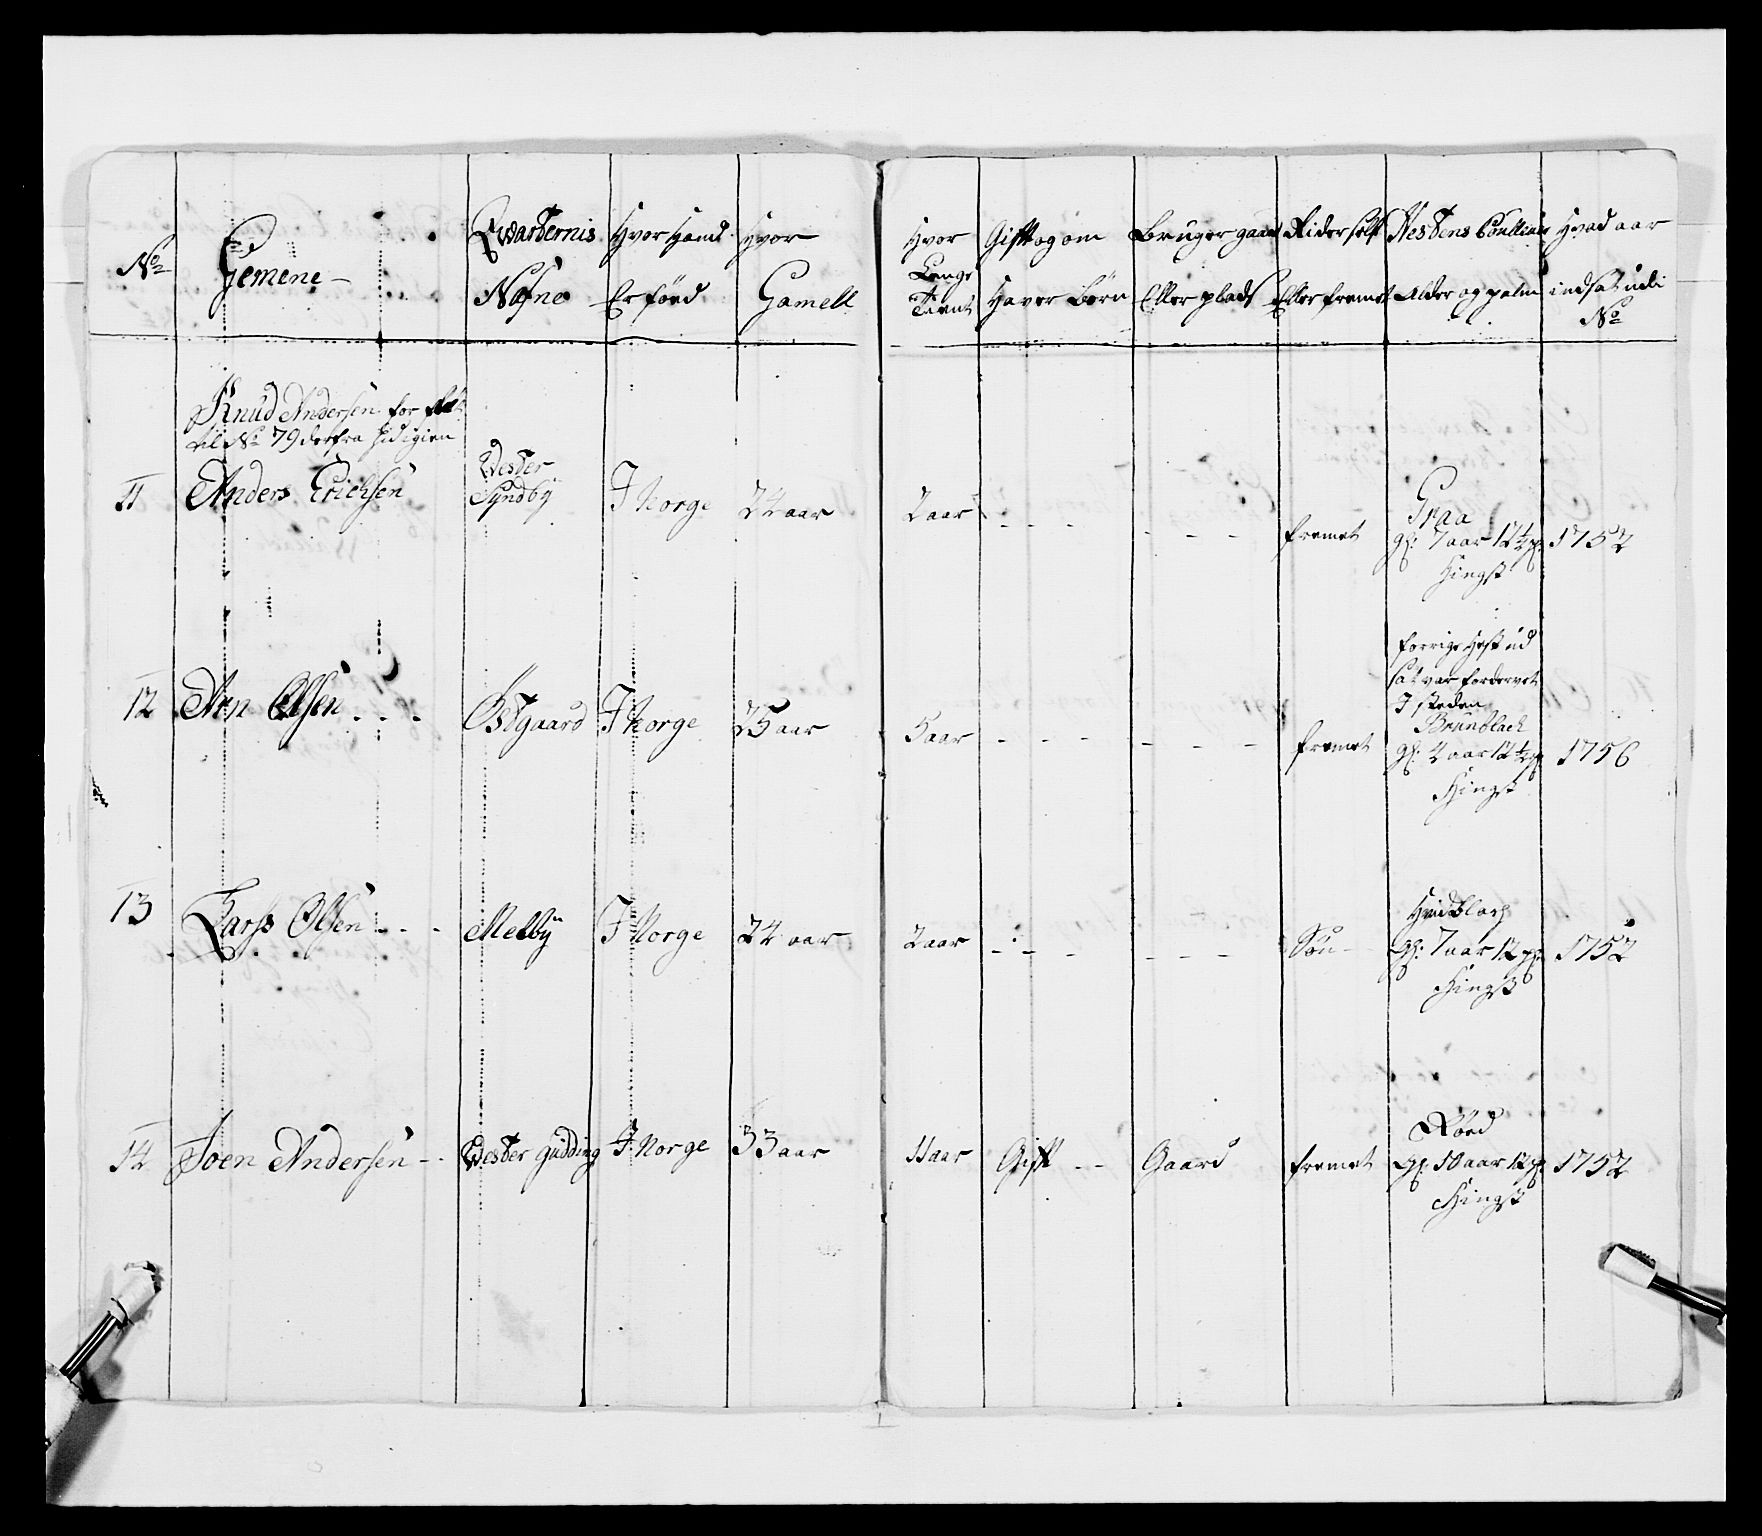 No Gemene - Qvarternis Nafne Hvor Hand Er föed Hvor Gamell Hvor Lenge Tient Gift og om Haver Börn Bruger gaard Eller plads Rider self Eller fremet Hestens Coulleur Alder og palm Hvad aar indsat udi No
Knud Andersen for
til No 79 derfra hid igien
11 Anders Erichsen Vester Syndby I Norge 24 aar 2 aar - - - - - - fremet Graa gl: 7 aar 12½ pl: Hingst 1752
12 Arn Olsen - - - Östgaard I Norge 25 aar 5 aar - - - - - - fremet forrige Hest ud sat var fordervet I steden Brunblach gl: 4 aar 12½ pl: Hingst 1756
13 Larss Olsen - - - Melby I Norge 24 aar 2 aar - - - - - - Søn - Hvidblach gl: 7 aar 12 pl: Hingst 1752
14 Joen Andersen - - Vester gudding I Norge 33 aar 11 aar Gift - - Gaard fremet Röed gl: 10 aar 12 pl: Hingst 1752